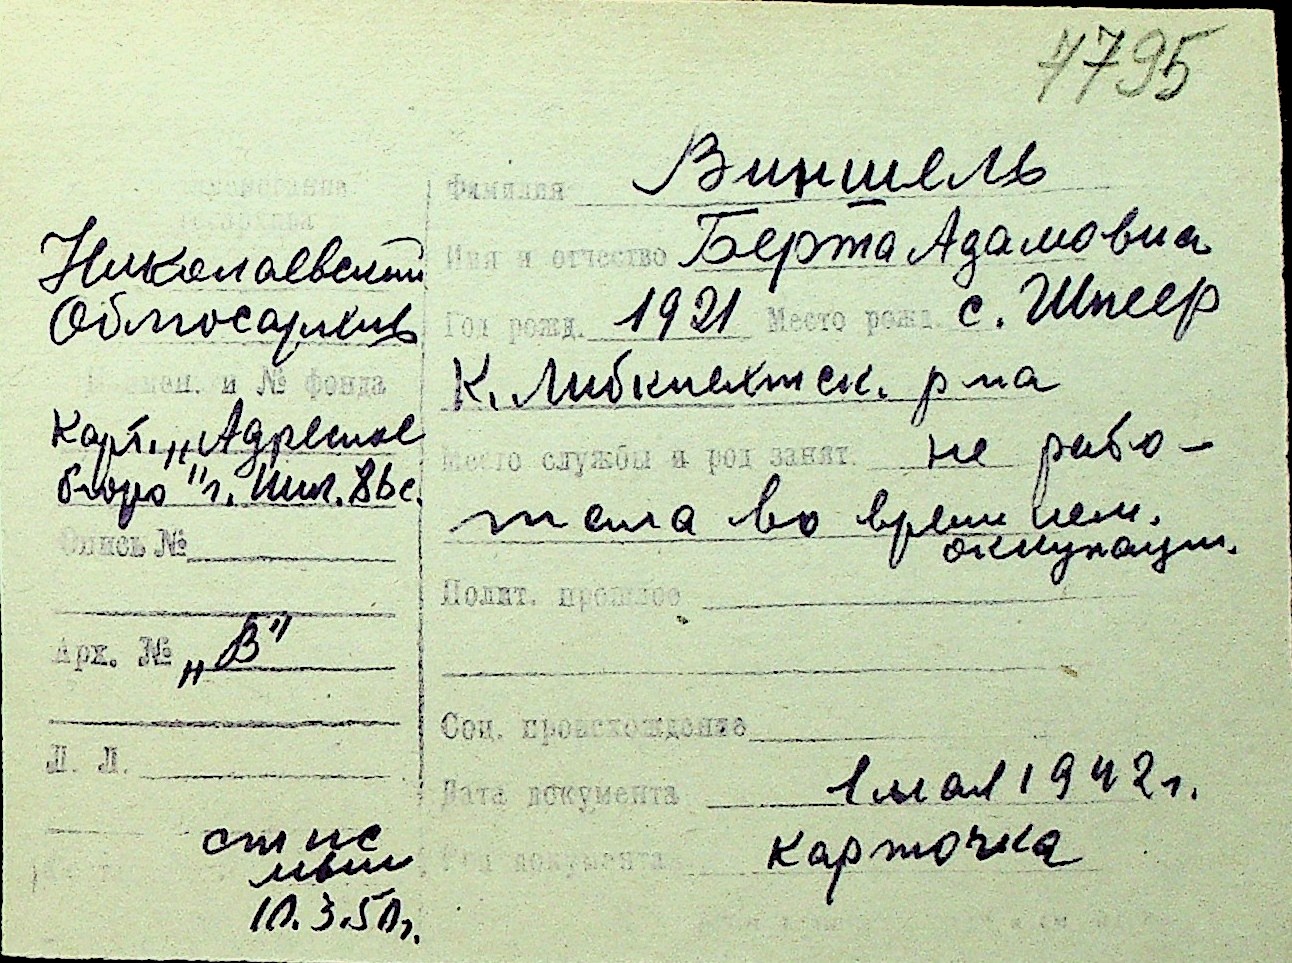 4795
Фамилия Виншель
Имя и отчество Берта Адамовна
Год рожд. 1921 Место рожд. с. Шпеер
К. Либкнехтск. р-на
Место службы и род занят. не рабо-
тала во время нем.
оккупации.
Полит. прошлое
Соц. происхождение
Дата документа 1 мая 1942 г.
Вид документа карточка
наименование
госархива
Николаевский
Облгосархив
Наимен. и № фонда
Карт. „Адресное
бюро" г. Ник.
Опись №
Арх. № „В"
Л. Л.
10.3.50 г.